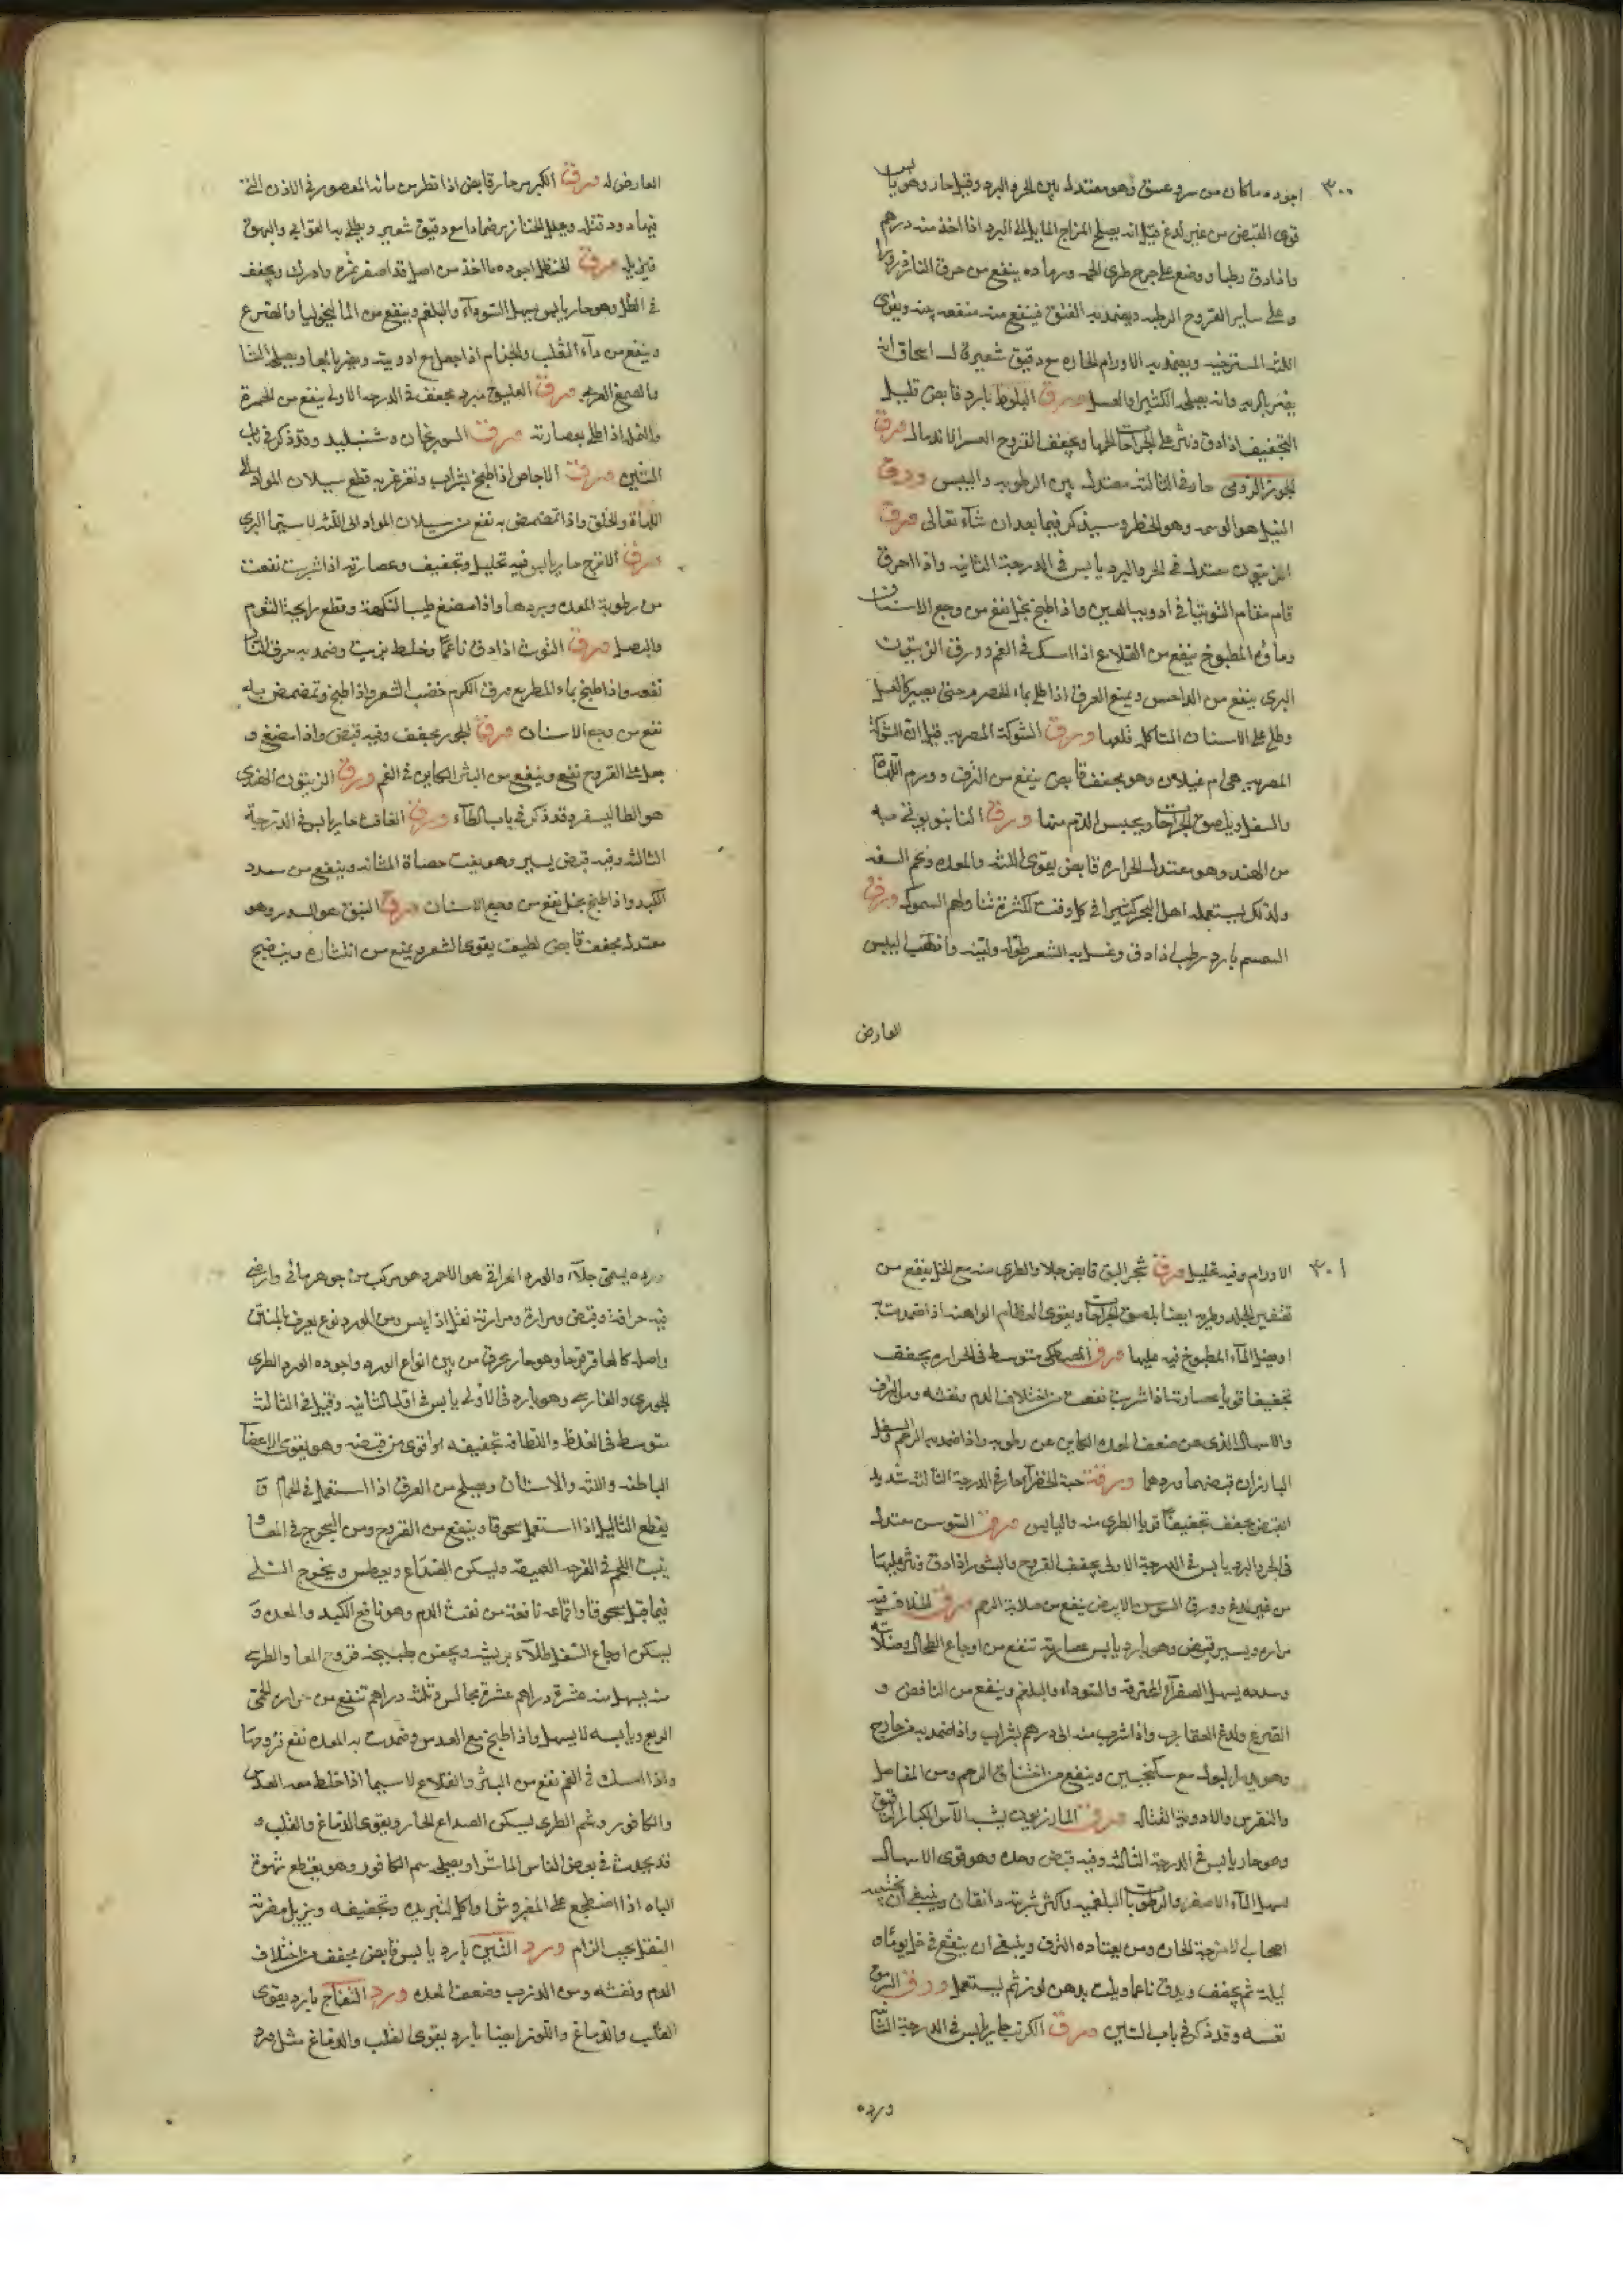 ٣٠٠
اجوده ماكان من سرو عتيق وهو معتدل بين الحر والبرد وقيل حار وهو يابس
قوى القبض من غير لدغ قيل انه يصلح المزاج المايل الى البرد اذا اخذ منه درهم
واذا دق رطبا ووضع على جرح طرى الحمه ورماده ينفع من حرق النار ذرورا
وعلى ساير القروح الرطبه ويضمد به الفتق فينفع منه منفعه بينه ويقوى
اللثه المسترخيه ويضمد به الاورام الحاره مع دقيق شعير قال اسحاق انه
يضر بالريه وانه يصلحه الكثيرا والعسل ورق البلوط بارد قابض قليل
التجفيف اذا دق ونثر على الجراحات الحمها ويجفف القروح العسرالاندمال ورق
الجوز الرومى حار فى الثالثه معتدل بين الرطوبه واليبس وورق
النيل هو الوسمه وهو الخطر وسيذكر فيما بعد ان شآء تعالى ورق
الزيتون معتدل فى الحر والبرد يابس فى الدرجة الثانيه واذا احرق
قام مقام التوتيا فى ادوية العين واذا طبخ بخل نفع من وجع الاسنان
وماؤه المطبوخ ينفع من القلاع اذا امسك فى الفم وورق الزيتون
البرى ينفع من الداحس ويمنع العرق اذا طلى بماء الحصرم حتى يصير كالعسل
وطلى على الاسنان المتاكله قلعها وورق الشوكة المصريه قيل ان الشوكة
المصريه هى ام غيلان وهو مجفف قابض ينفع من النزف وورم اللهاة
والسفل ويلصق الجراحات ويحبس الدم منها ورق التانبو يؤتى به
من الهند وهو معتدل الحراره قابض يقوى اللثه والمعده وفم المعده
ولذلك يستعمله اهل البحر كثيرا فى كل وقت لكثرة تناولهم السموك ورق
السمسم بارد رطب اذا دق وغسل به الشعر طوله ولينه واذهب اليبس
العارض
العارض له ورق الكبر حار قابض اذا قطر من مائه المعصور فى الاذن التى
فيها دود قتله ويحلل الخنازير ضمادا مع دقيق شعير ويطلى به القوابى والبهق
فيزيله ورق الحنظل اجوده ما اخذ من اصل قد اصفر ثمره وادرك ويجفف
فى الظل وهو حار يابس يسهل السودآء والبلغم وينفع من الماليخوليا والصرع
وينفع من دآء الثعلب والجذام اذا جعل مع ادويته ويضر بالمعا ويصلحه النشا
والصمغ العربى ورق العليق مبرد مجفف فى الدرجه الاولى ينفع من الحمرة
والنمله اذا طلى بعصارته ورق السورنجان هو شنبليد وقد ذكر فى باب
الشين ورق الاجاص اذا طبخ بشراب وتغرغر به قطع سيلان المواد الى
اللهاة والحلق واذا تمضمض به نفع من سيلان المواد الى اللثه لا سيما البرى
ورق الاترج حار يابس فيه تحليل وتجفيف وعصارته اذا شربت نفعت
من رطوبة المعده وبردها واذا مضغ طيب النكهة وقطع رايحة الثوم
والبصل ورق التوث اذا دق ناعما وخلط بزيت وضمد به حرق النار
نفعه واذا طبخ بماء المطر مع ورق الكرم خضب الشعر واذا طبخ وتمضمض به
نفع من وجع الاسنان ورق الجوز يجفف وفيه قبض واذا مضغ و
جعل على القروح نفع وينفع من البثر الكاين فى الفم ورق الزيتون الهندى
هو الطاليسفر وقد ذكر فى باب الطآء ورق الغافت حار يابس فى الدرجة
الثالثه وفيه قبض يسير وهو يفتت حصاة المثانه وينفع من سدد
الكبد واذا طبخ بخل نفع من وجع الاسنان ورق النبق هو السدر وهو
معتدل مجفف قابض لطيف يقوى الشعر ويمنع من انتثاره وينضج
٣٠١
الاورام وفيه تحليل ورق شجر البق قابض جلا والطرى منه مع الخل ينفع من
تقشير الجلد وطريه ايضا يلصق الجراحات ويقوى العظام الواهنه اذا ضمدت به
او صب المآء المطبوخ فيه عليها ورق المصطكى متوسط فى الحراره يجفف
تجفيفا قويا عصارته اذا شربت نفعت من اختلاف الدم ونفثه ومن النزف
والاسهال الذى من ضعف المعده الكاين عن رطوبه واذا ضمد به الرحم والسفل
البارزان قبضهما وردهما وورق حبة الخضرآ حار فى الدرجة الثالثه شديد
القبض يجفف تجفيفا قويا الطرى منه واليابس ورق السوس معتدل
فى الحر والبرد يابس فى الدرجة الاولى يجفف القروح والبثور اذا دق ونثر عليها
من غير لدغ وورق السوسن الابيض ينفع من صلابة الرحم ورق الخلاف فيه
مراره ويسير قبض وهو بارد يابس عصارته تنفع من اوجاع الطحال وصلابته
وسدده يسهل الصفرآء المحترقه والسودآء والبلغم وينفع من النافض و
الصرع ولدغ العقارب واذا شرب منه الى درهم بشراب واذا ضمد به من خارج
وهو يدر البول مع سكنجبين وينفع من اختناق الرحم ومن المفاصل
والنقرس والادوية القتاله ورق المازريون يشبه الآس الكبار الرقيق
وهو حار يابس فى الدرجة الثالثه وفيه قبض وحده وهو قوى الاسهال
يسهل المآء الاصفر والرطوبات البلغميه واكثر شربته دانقان وينبغى ان يجتنبه
اصحاب الامزجة الحاره ومن يعتاده النزف وينبغى ان ينقع فى خل يوما و
ليلة ثم يجفف ويدق ناعما ويلت بدهن لوز ثم يستعمل وورق
نفسه وقد ذكر فى باب الشين ورق الكرنب حار يابس فى الدرجة
ورده
ورده يسمى جلآء والورد العراقى هو الاحمر وهو مركب من جوهر مائى وارضى
فيه حرافة وقبض ومرارة ومرارته تقل اذا يبس ومن الورد نوع يعرف بالمنتن
واصله كالعاقرقرحا وهو حار محرق من بين انواع الورد واجوده الورد الطرى
الجورى والفارسى وهو بارد فى الاولى يابس فى اول الثانيه وقيل فى الثالثه
متوسط فى الغلظ واللطافه تجفيفه اقوى من قبضه وهو يقوى الاعضآ
الباطنه واللثه والاسنان ويصلح من العرق اذا استعمل فى الحمام و
يقطع الثاليل اذا استعمل مسحوقا وينفع من القروح ومن السحوج فى المعا و
ينبت اللحم فى القرحه العميقه ويسكن الصداع ويعطس ويخرج السلى
فيما قيل مسحوقا واقماعه نافعة من نفث الدم وهو نافع الكبد والمعده و
يسكن اوجاع السفل طلآء بريشه ويحقن بطبيخه قروح المعا والطرى
منه يسهل منه عشرة دراهم عشرة مجالس وثلثه دراهم تنفع من حراره الحمى
الربع ويابسه لا يسهل واذا طبخ مع العدس وضمدت به المعده نفع قروحها
واذا امسك فى الفم نفع من البثر والقلاع لا سيما اذا خلط معه العدس
والكافور وشم الطرى يسكن الصداع الحار ويقوى الدماغ والقلب و
قد يحدث فى بعض الناس الماشرا ويصلحه شم الكافور وهو يقطع شهوة
الباه اذا اضطجع على المفروش او اكل لتبريده وتجفيفه ويزيل مضرته
النقل بحب الزلم ورد التين بارد يابس قابض مجفف من اختلاف
الدم ونفثه ومن الذرب وضعف المعده ورد التفاح بارد يقوى
القلب والدماغ واللوز ايضا بارد يقوى القلب والدماغ مثل ورد